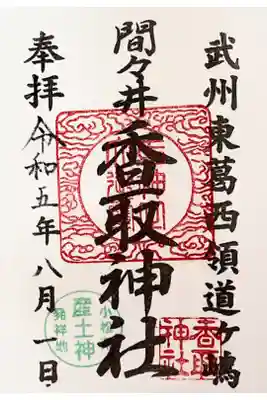 武州東葛西領道ヶ嶋
間々井
香取神社
奉拝
令和五年八月一日
香取神社
産土神
発祥地